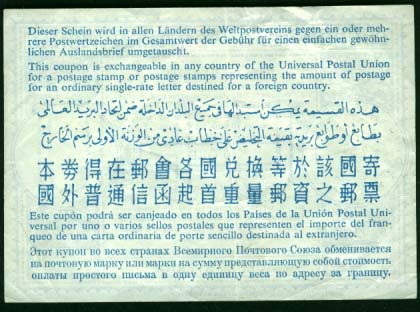 Dieser Schein wird in allen Ländern des Weltpostvereins gegen ein oder meh-
rere Postwertzeichen im Gesamtwert der Gebühr für einen einfachen gewöhn-
lichen Auslandsbrief umgetauscht.
This coupon is exchangeable in any country of the Universal Postal Union
for a postage stamp or postage stamps representing the amount of postage
for an ordinary single-rate letter destined for a foreign country.
هذه القسيمة يمكن استبدالها في جميع البلدان الداخلة ضمن اتحاد البريد العالمى
بطابع أو طوابع بريد بقيمة التخليص على خطاب عادى من الوزنة الأولى برسم الخارج
本券得在郵會各國兌換等於該國寄
國外普通信函起首重量郵資之郵票
Este cupón podrá ser canjeado en todos los Países de la Unión Postal Uni-
versal por uno o varios sellos postales que representen el importe del fran-
queo de una carta ordinaria de porte sencillo destinada al extranjero.
Этот купон во всех странах Всемирного Почтового Союза обменивается
на почтовую марку или марки на сумму представляющую собой стоимость
оплаты простого письма в одну единицу веса по адресу за границу.